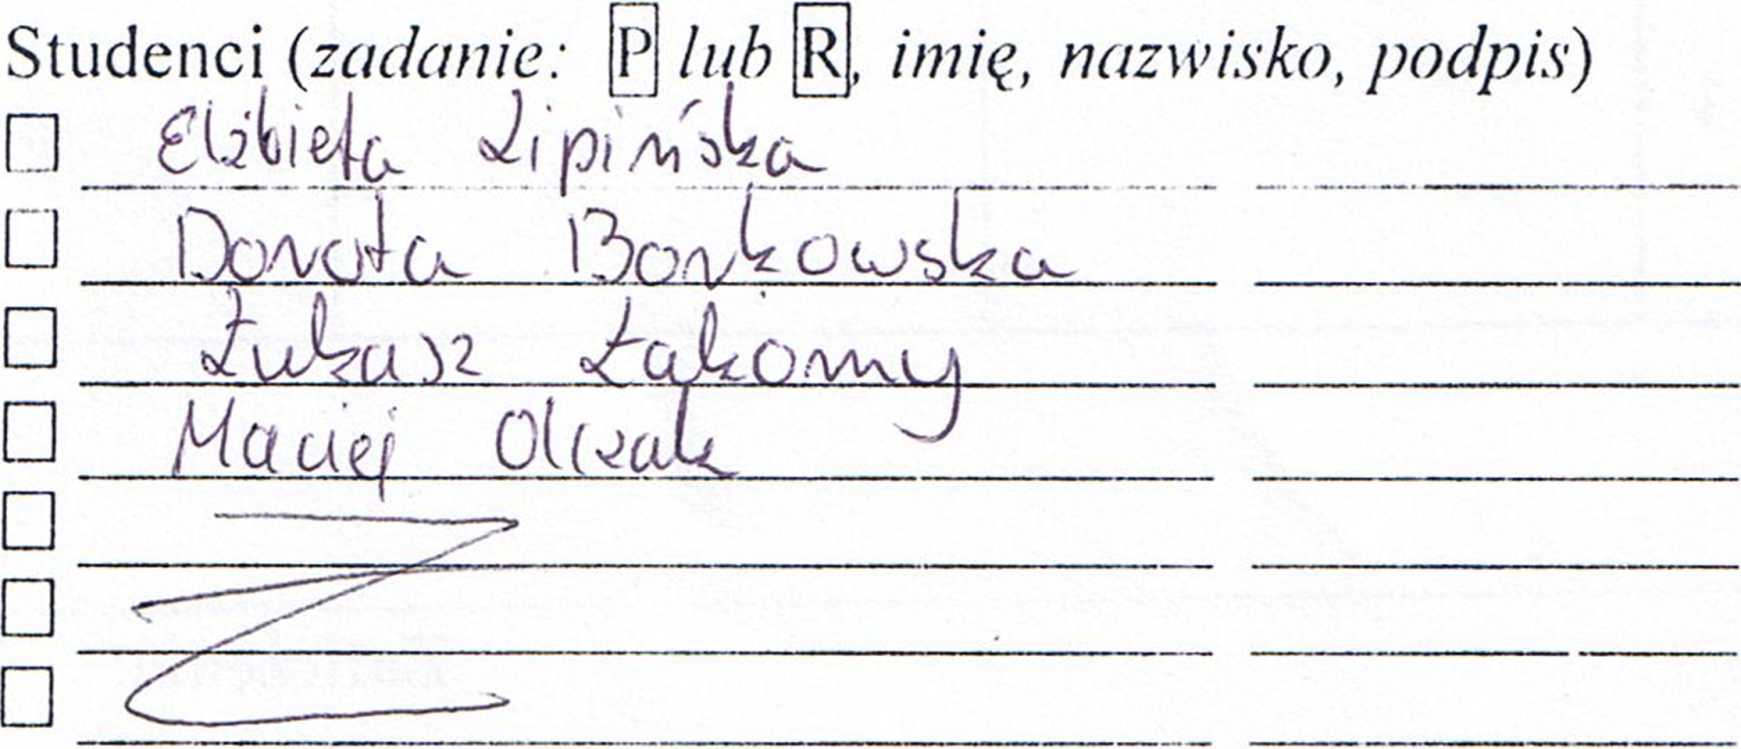 Studenci (zadanie: P lub R, imię, nazwisko, podpis)
Elżbieta Lipińska
Dorota Borkowska
Łukasz Łakomy
Maciej Olczak